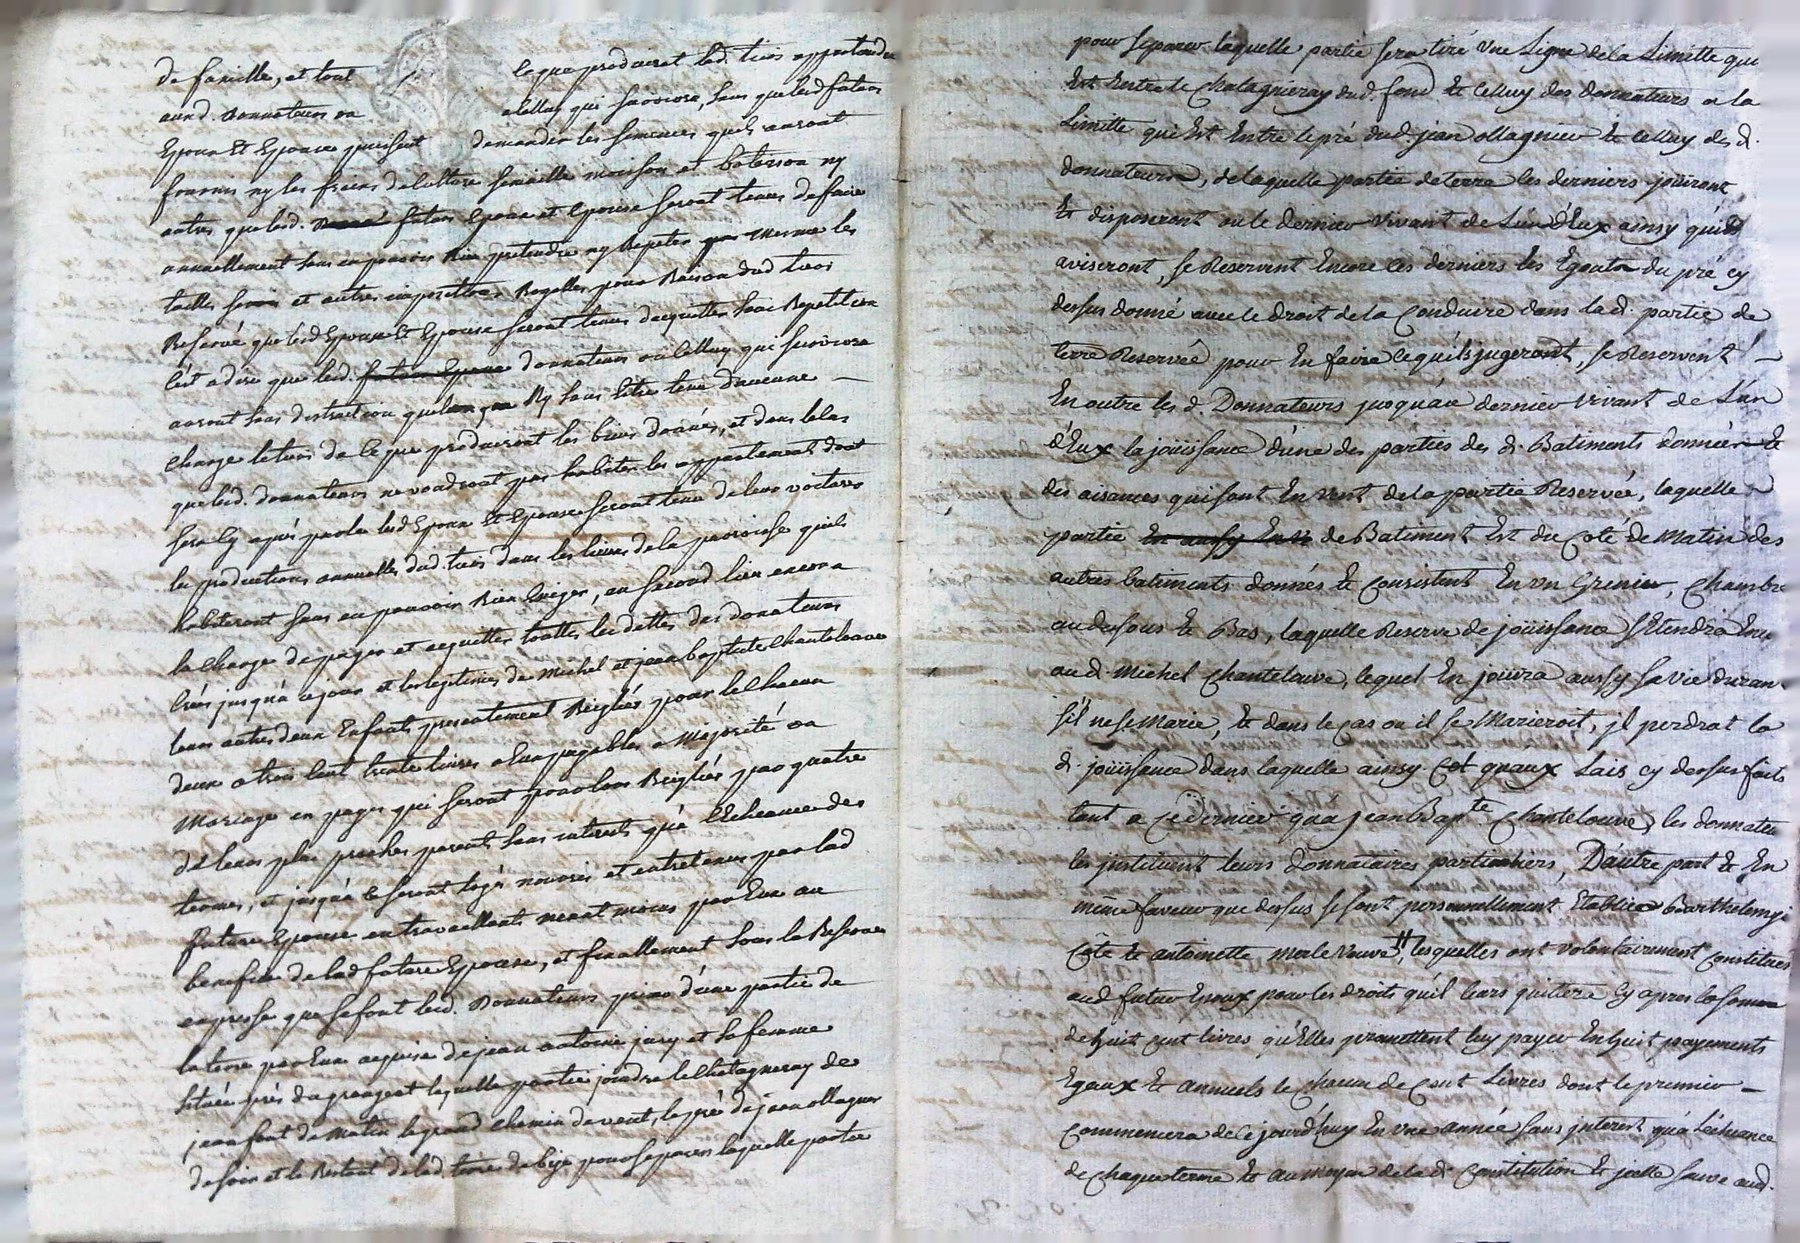 de famille, et tout ce que produiront led. tiers appartiendra
auxd. Donnateurs ou a celluy qui survivra, sans que lesd futurs
Epoux Et Epouse puissent demander les semences quils auront
fournis ny les fraix de culture semaille moisson et baterson ny
autres que lesd. futurs Epoux et Epouse seront tenus de faire
annuellement sans en pouvoir Rien pretendre ny Repeter pas mesme les
tailles et autres impositions Royalles pour Raison dud tiers
Reservé que lesd Epoux Et Epouse seront tenus dacquitter sans Repetition
C'est a dire que lesd. futurs Epoux donnateurs ou celluy qui survivra
auront sans distraction quelconque Ny sans être tenu d'aucune
charge le tiers de ce que produiront les biens donnés, et dans le cas
que lesd. donnateurs ne voudroient pas habiter les appartements dont
sera Cy après parlé lesd Epoux Et Epouse seront tenu de leur voiturer
les productions annuelles dud. tiers dans les lieux de la paroisse quils
habiteront sans en pouvoir Rien Exiger, en second lieu encore a
la charge de payer et acquitter touttes les dettes des donateurs
Crées jusqu'a ce jour et les legitimes de Michel et jean baptiste Chantelouve
leurs autres deux Enfants presentement Reiglés pour le chacun
deux a trois cent trente livres a Eux payables a Majorité ou
Mariage en payes qui seront pour lors Reiglés par quatre
de leurs plus proches parents sans interets qu'a l'Echeance des
termes, et jusqu'a ce seront logés nouris et entretenus par lad
future Epouse en travaillant neant moins par Eux au
benefice de lad future Epouse, et finallement sous la Reserve
expresse que se font lesd. Donnateurs primo d'une partie de
la terre par Eux acquise de jean antoine jury et sa femme
située près du grangeat laquelle partie joindra le Chatagneray de
jean font de Matin le grand chemin de vent, le pré de jean ollagner
de soir et le Restant de lad. terre de bize pour separer laquelle partie
pour separer laquelle partie sera tiré une Ligne de la Limitte qui
Est Entre le Chatagnieray dud. font Et Celluy des donnateurs a la
Limitte qui Est Entre le pré dud. jean ollagnier Et celluy des d.
donnateurs, de laquelle partie de terre les derniers joüiront
Et disposeront ou le dernier vivant de L'un d'Eux ainsy qu'ils
aviseront, se Reservent Encore ces derniers les Egouts du pré cy
dessus donné avec le droit de la Conduire dans lad. partie de
terre Reservée pour En faire ce quils jugeront, se Reservent
En outre les d. Donnateurs jusqu'au dernier vivant de L'un
d'Eux la joüissance d'une des parties des d. Batiments donnés Et
des aisances qui sont En vent de la partie Reservée, laquelle
partie de Batiment Est du Coté de Matin des
autres batiments donnés Et Consistent En un Grenier, Chambre
au dessous Et Bas, laquelle Reserve de joüissance s'Etendra Encore
au d. Michel Chantelouve, lequel En joüira aussy sa vie durant
s'il ne se Marie, Et dans le cas ou il se Marieroit, jl perdrat la
d. joüissance dans laquelle ainsy qu'aux Lais cy dessus faits
tant a ce dernier qu'a jean Bapte. Chantelouve, les donnateurs
les jnstituent leurs donnataires particuliers, D'autre part Et En
même faveur que dessus se sont personnellement Etablies Barthelemye
Côte Et antoinette Merle veuve, lesquelles ont volontairement Constitué
aud futur Epoux pour les droits qu'il leurs quittera cy apres la somme
de huit cent livres qu'Elles promettent luy payer En huit payements
Egaux Et annuels le chacun de Cent Livres dont le premier
Commencera de ce jourd'huy En une année sans jnterest qu'a L'échéance
de chaque terme Et au moyen de la d. Constitution Et jcelle sauve aud.